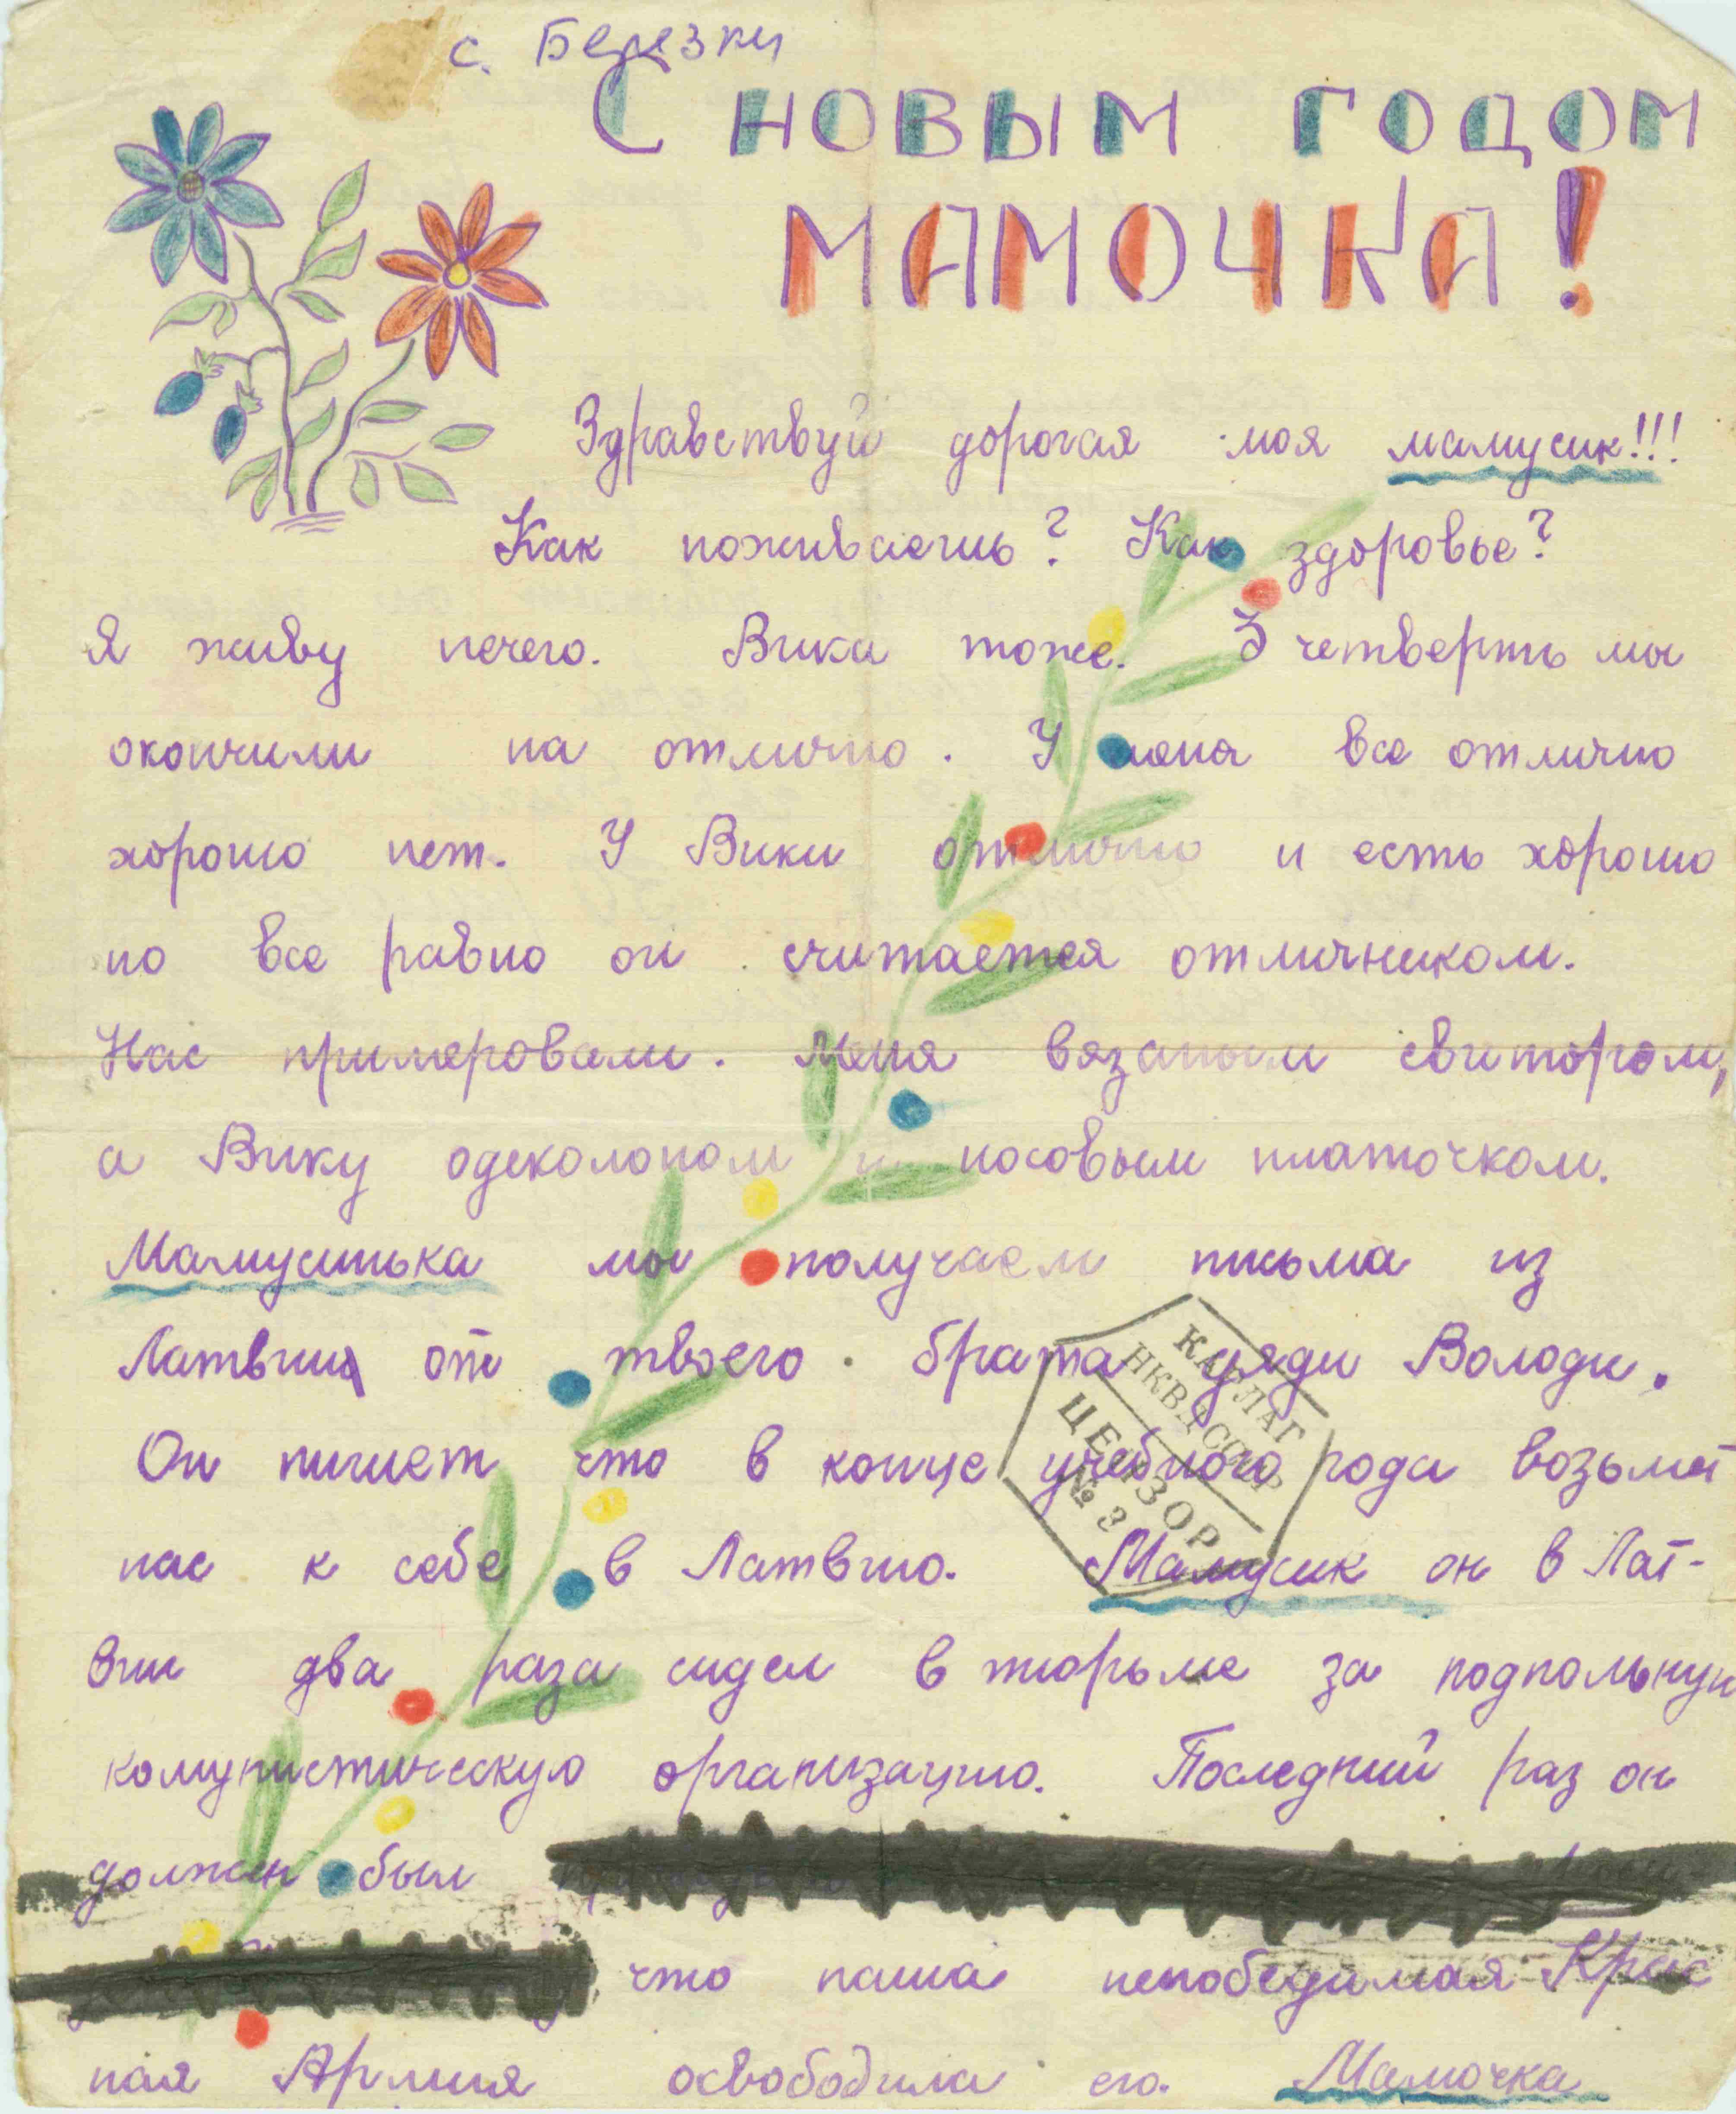 с. Березки
С НОВЫМ ГОДОМ
МАМОЧКА!
Здравствуй дорогая моя мамусик!!!
Как поживаешь? Как здоровье?
Я живу нечего. Вика тоже. 3 четверть мы
окончили на отлично. У меня все отлично
хорошо нет. У Вики отлично и есть хорошо
но все равно он считается отличником.
Нас примеровали. Меня вязаным свитором,
а Вику одеколоном и носовым платочком.
Мамусинька мы получаем письма из
Латвии от твоего брата дяди Володи.
Он пишет что в конце учебного года возьмёт
нас к себе в Латвию. Мамусик он в Лат-
вии два раза сидел в тюрьме за подпольную
комунистическую организацию. Последний раз он
должен был
что наша непобедимая Крас
ная Армия освободила его. Мамочка
КАРЛАГ
НКВД СССР
ЦЕНЗОР
№ 3